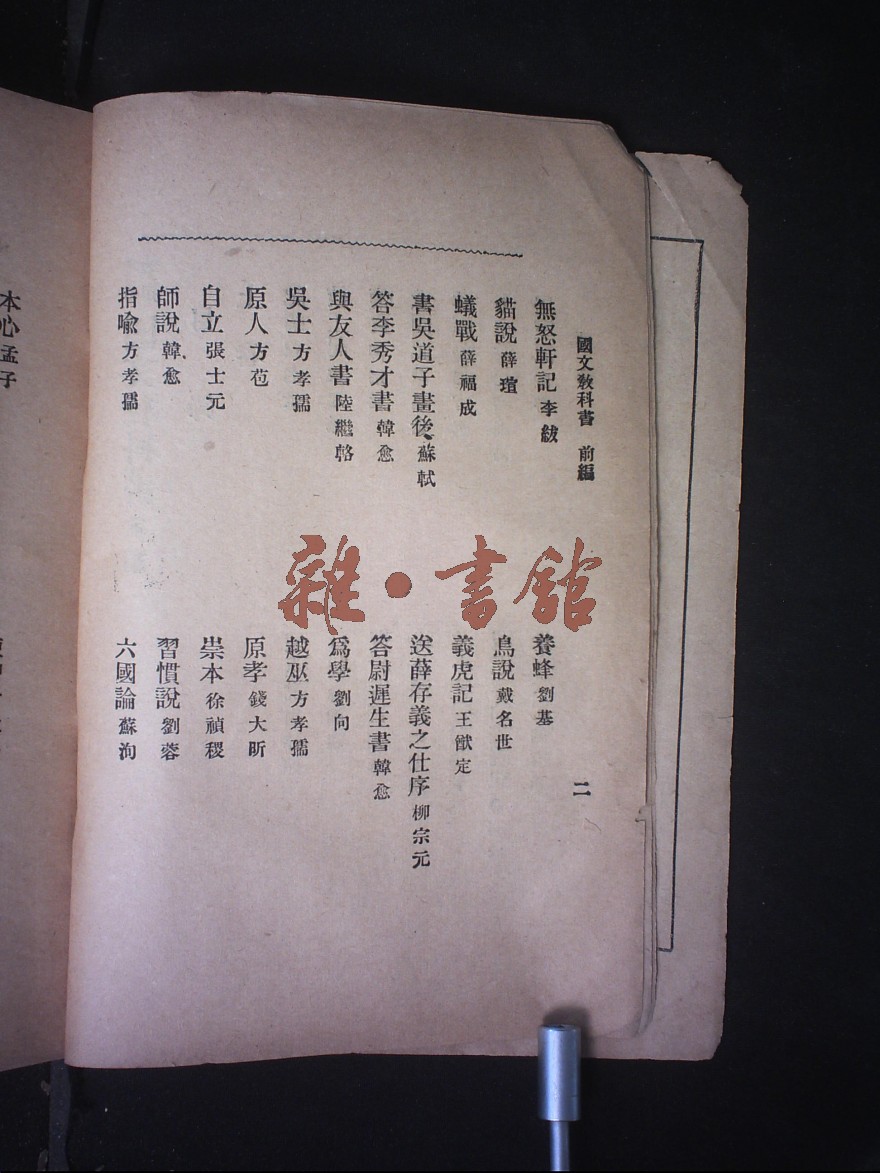 國文教科書 前編
二
無怒軒記 李紱
養蜂 劉基
貓說 薛瑄
鳥說 戴名世
蟻戰 薛福成
義虎記 王猷定
書吳道子畫後 蘇軾
送薛存義之仕序 柳宗元
答李秀才書 韓愈
答尉遲生書 韓愈
與友人書 陸繼輅
爲學 劉向
吳士 方孝孺
越巫 方孝孺
原人 方苞
原孝 錢大昕
自立 張士元
崇本 徐禎稷
師說 韓愈
習慣說 劉蓉
指喻 方孝孺
六國論 蘇洵
本心 孟子
雜·書館